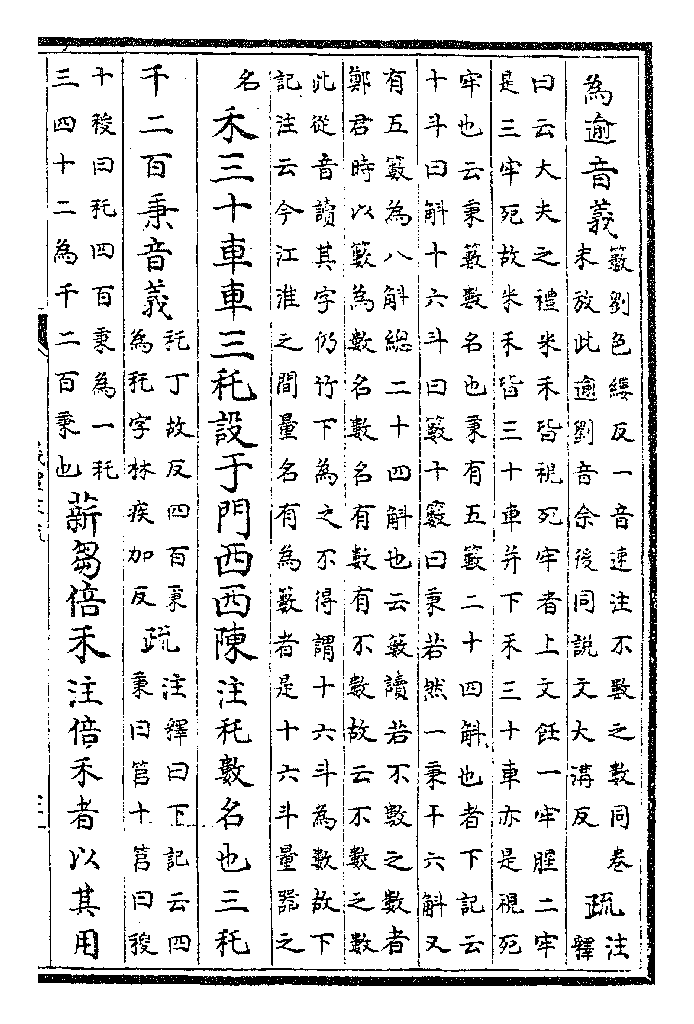 為逾音義
籔劉色縷反一音速注不數之數同卷
末放此逾劉音余後同説文大溝反
疏
注
釋
曰云大夫之禮米禾皆視死牢者上文飪一牢腥二牢
是三牢死故米禾皆三十車并下禾三十車亦是視死
牢也云秉籔數名也秉有五籔二十四斛也者下記云
十斗曰斛十六斗曰籔十籔曰秉若然一秉十六斛又
有五籔為八斛總二十四斛也云籔讀若不數之數者
鄭君時以籔為數名數名有數有不數故云不數之數
此從音讀其字仍竹下為之不得謂十六斗為數故下
記注云今江淮之間量名有為籔者是十六斗量器之
名
禾三十車車三秅設于門西西陳注秅數名也三秅
千二百秉音義
秅丁故反四百秉
為秅字林疾加反
疏
注釋曰下記云四
秉曰筥十筥曰稯
十稯曰秅四百秉為一秅
三四十二為千二百秉也
薪芻倍禾注倍禾者以其用